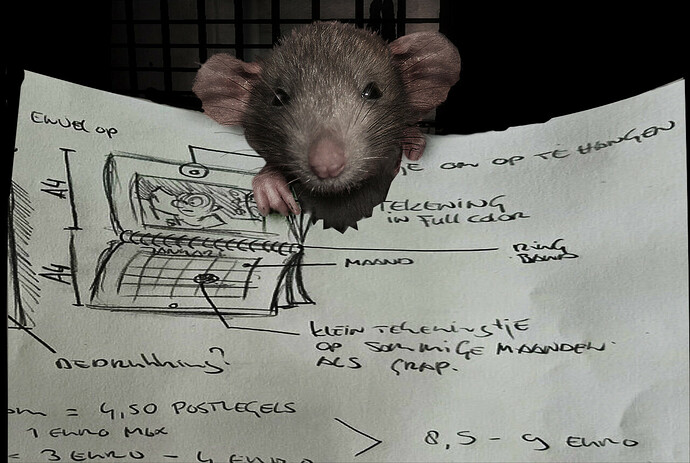 ENVELOP
JE OM OP TE HANGEN
A4
TEKENING
IN FULL COLOR
RING
BAND
JANUARI
MAAND
A4
KLEIN TEKENINGTJE
OP SOMMIGE MAANDEN.
ALS GRAP.
BEDRUKKING?
= 4,50 POSTZEGELS
1 EURO MAX
8,5 - 9 EURO
= 3 EURO - 4 EURO